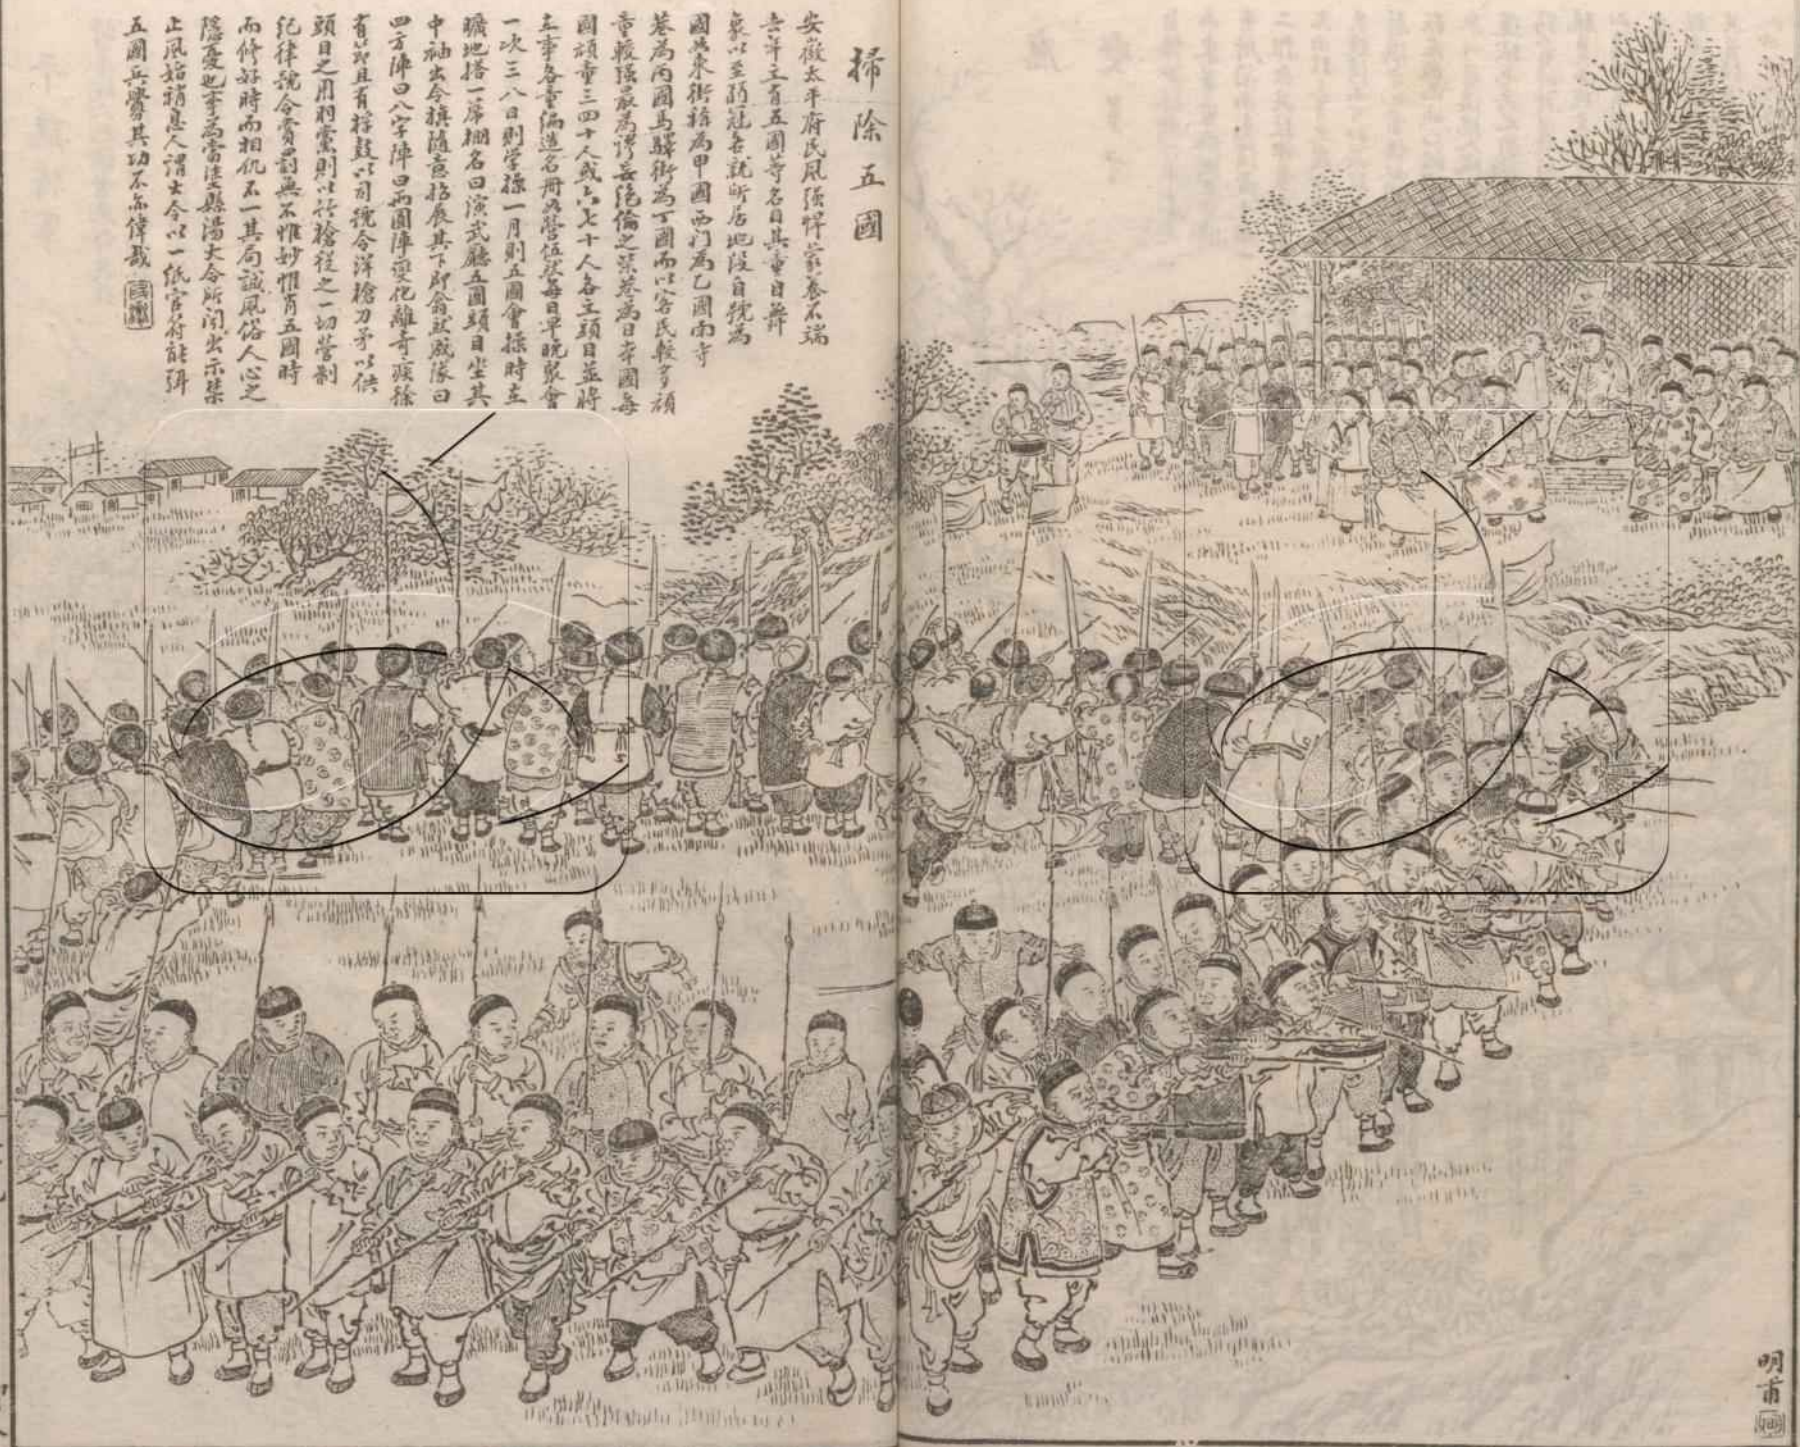 掃除五國
安徽太平府民風强悍蒙養不端
去年立有五國等名目其童自舞
象以至弱冠各就所居地段自號爲
國如東街稱爲甲國西門爲乙國南寺
巷爲丙國馬驛街爲丁國而以客民較多頑
童較强最爲謬妄絕倫之某巷爲日本國每
國頑童三四十人或六七十人各立頭目並將
主事各童編造名冊如營伍然每日早晚聚會
一次三八日則學操一月則五國會操時在
曠地搭一席棚名曰演武廳五國頭目坐其
中袖出令旗隨意指展其下即翕然成隊曰
四方陣曰八字陣曰兩圓陣變化離奇疾徐
有節且有桴鼓以司號令洋槍刀矛以供
頭目之用羽黨則以竹槍從之一切營制
紀律號令賞罰無不惟妙惟肖五國時
而修好時而相仇不一其局誠風俗人心之
隱憂也事爲當塗縣湯大令所聞出示禁
止風始稍息人謂大令以一紙官府能弭
五國兵釁其功不亦偉哉
明甫